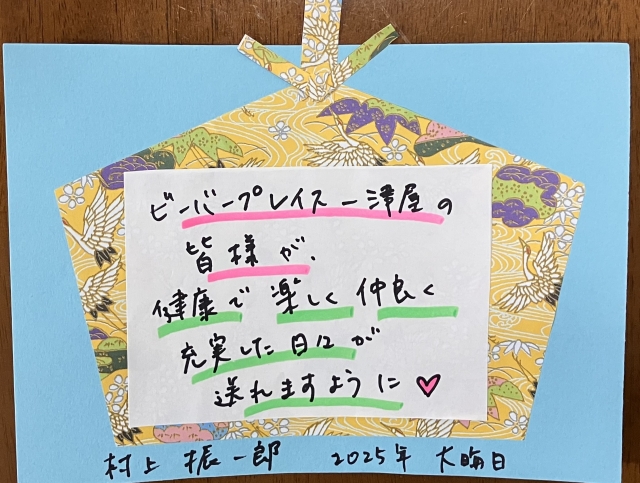 ビーバープレイス一津屋の
皆様が、
健康で 楽しく 仲良く
充実した日々が
送れますように♡
村上 振一郎 2025年 大晦日